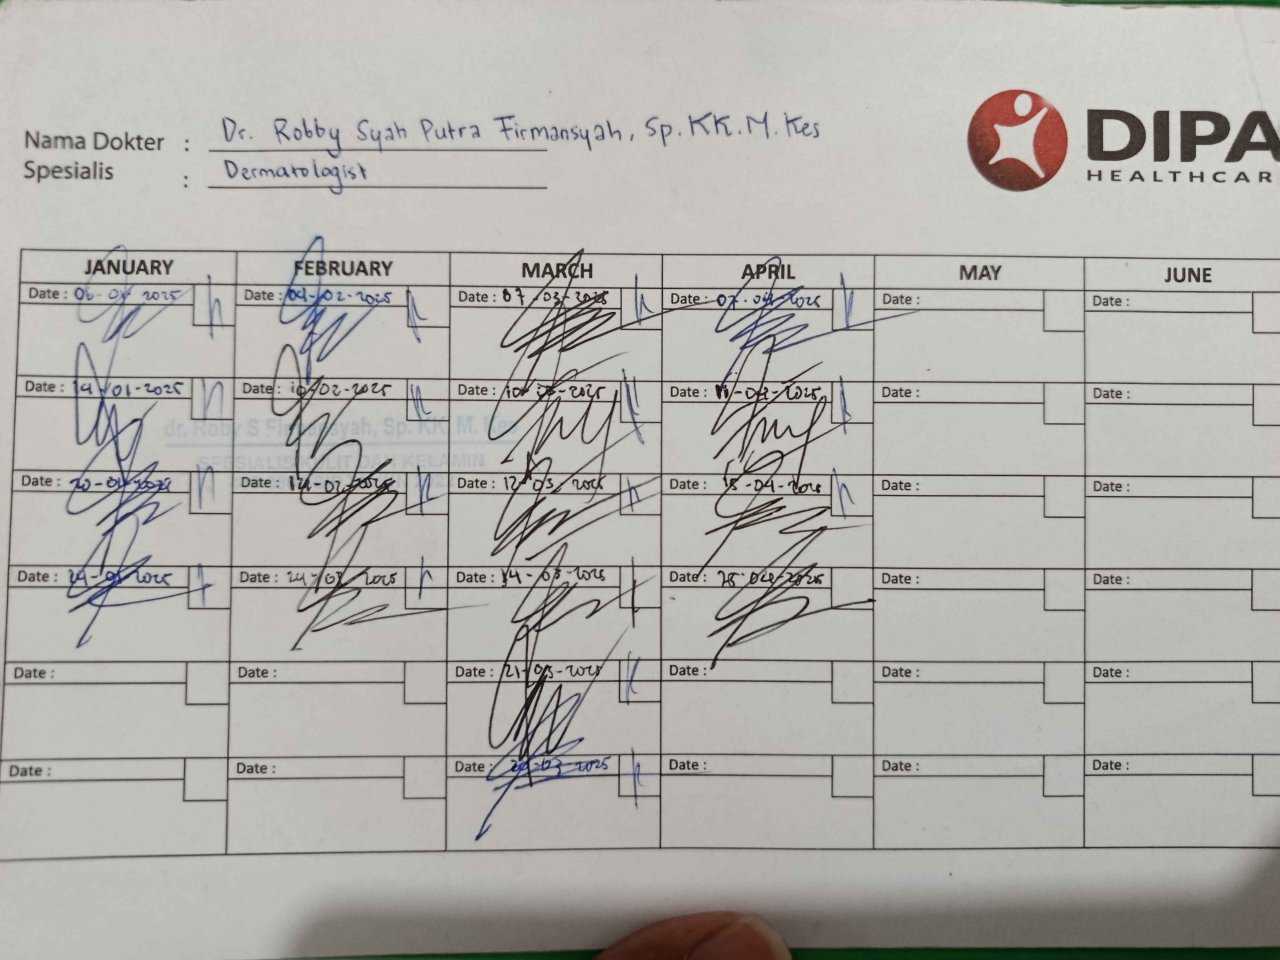 Nama Dokter : Dr. Robby Syah Putra Firmansyah, Sp.KK.M.Kes
Spesialis : Dermatologist
DIPA
HEALTHCAR
JANUARY FEBRUARY MARCH APRIL MAY JUNE
Date : 06-01-2025 Date : 04-02-2025 Date : 07-03-2025 Date : 07-04-2025 Date : Date :
Date : 14-01-2025 Date : 10-02-2025 Date : 10-03-2025 Date : 11-04-2025 Date : Date :
dr. Roby S Firmansyah, Sp. KK, M. Kes
SPESIALIS KULIT DAN KELAMIN
Date : 20-01-2025 Date : Date : 12-03-2025 Date : 15-04-2025 Date : Date :
Date : Date : Date : 14-03-2025 Date : Date : Date :
Date : Date : Date : 21-03-2025 Date : Date : Date :
Date : Date : Date : Date : Date : Date :